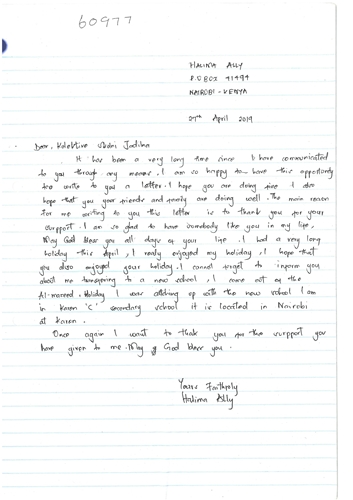 60977
HALIMA ALLY
P.O BOX 41494
NAIROBI - KENYA
27th April 2019
Dear,
It has been a very long time since I have communicated
to you through any means. I am so happy to have this opportunity
to write to you a letter. I hope you are doing fine I also
hope that you your friends and family are doing well. The main reason
for me writing to you this letter is to thank you for your
support. I am so glad to have somebody like you in my life,
May God bless you all days of your life. I had a very long
holiday this April, I really enjoyed my holiday. I hope that
you also enjoyed your holiday. I cannot forget to inform you
about me transferring to a new school, I came out of the
Holiday I was catching up with the new school I am
in Karen 'C' secondary school it is located in Nairobi
at Karen.
Once again I want to thank you for the support you
have given to me. May God bless you.
Yours Faithfully
Halima Ally